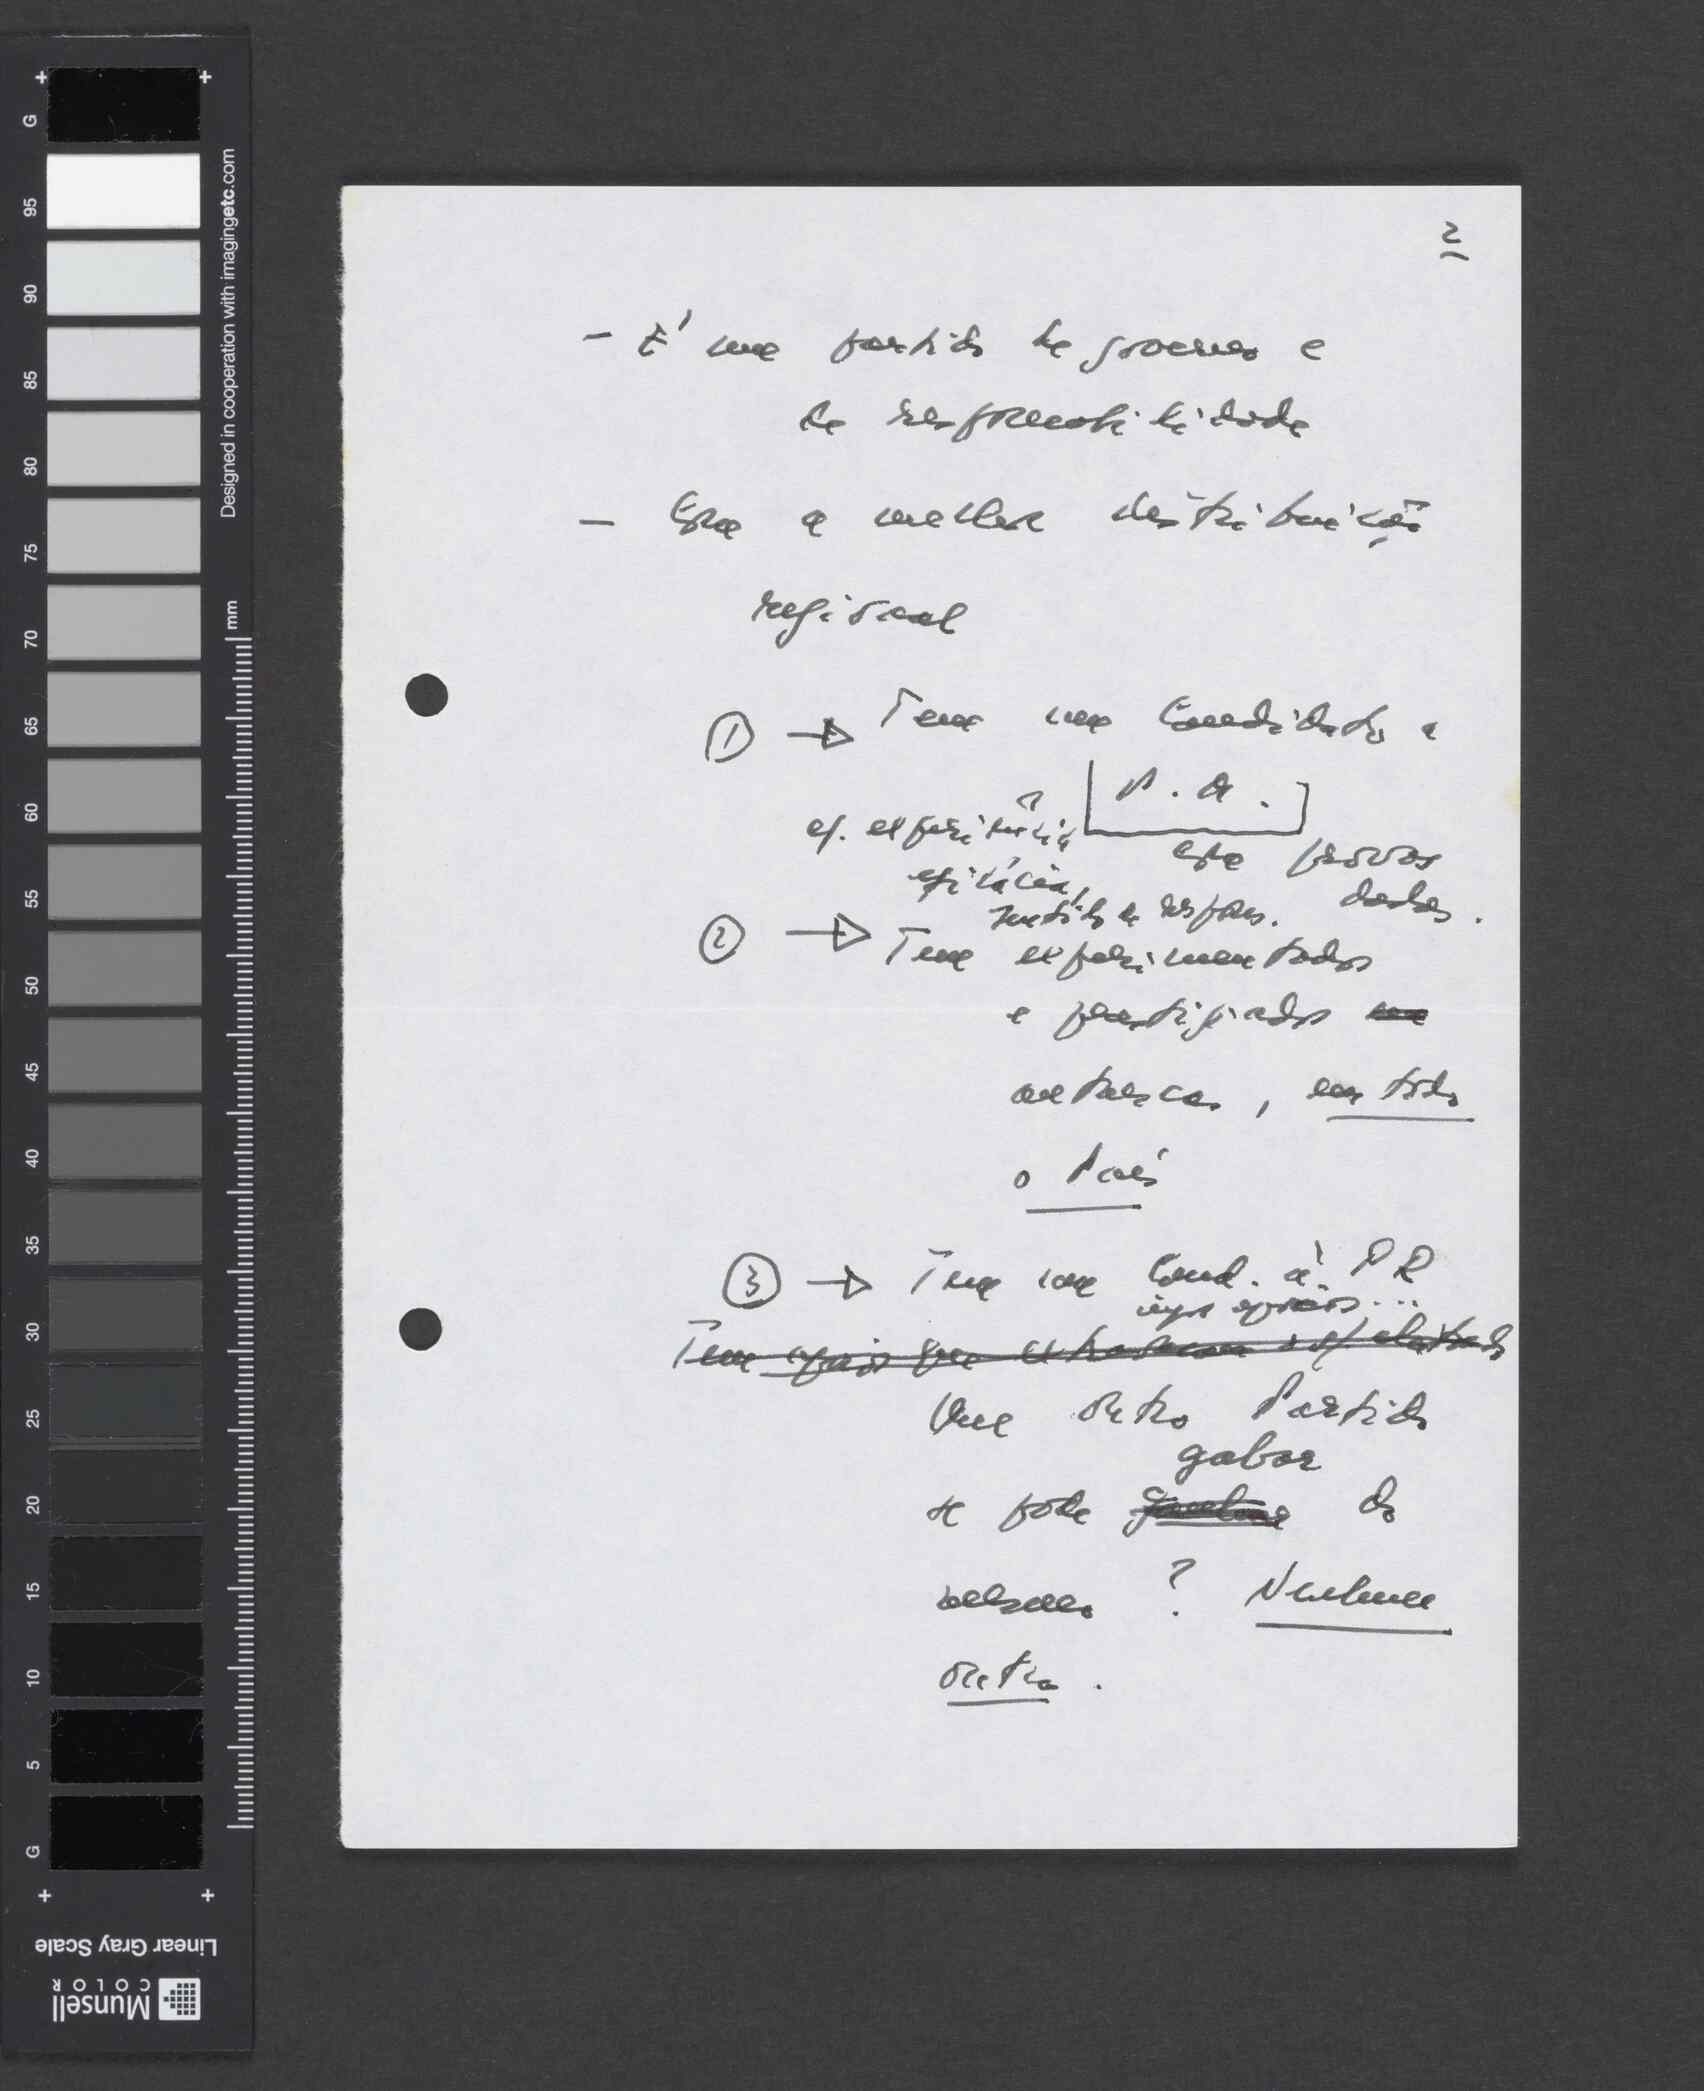 2
- É um partido de governo e
de responsabilidade
- Com a melhor distribuição
regional
① → Tem um Candidato a
P. M.
c/. experiência,
com provas
eficácia,
dadas.
sentido de respons.
② → Tem experimentados
e prestigiados
autarcas, em todo
o País
③ → Tem um Cand. à PR
Tem
Que outro Partido
gabar
se pode do
mesmo? Nenhum
outro.
G
95
90
85
80
75
70
65
60
55
50
45
40
35
30
25
20
15
10
5
G
Designed in cooperation with imagingetc.com
mm
Linear Gray Scale
Munsell
COLOR